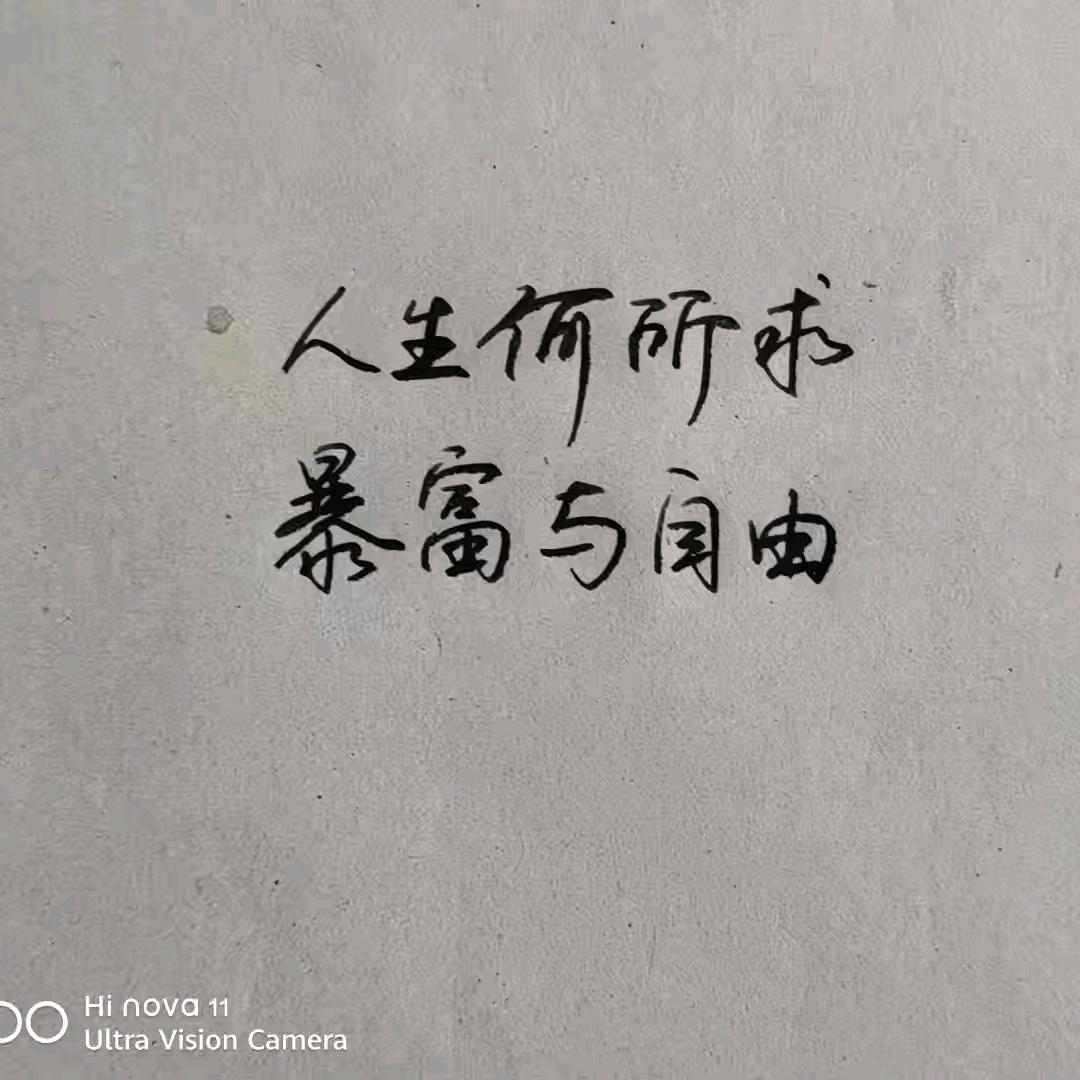 人生何所求
暴富与自由
Hi nova 11
Ultra Vision Camera